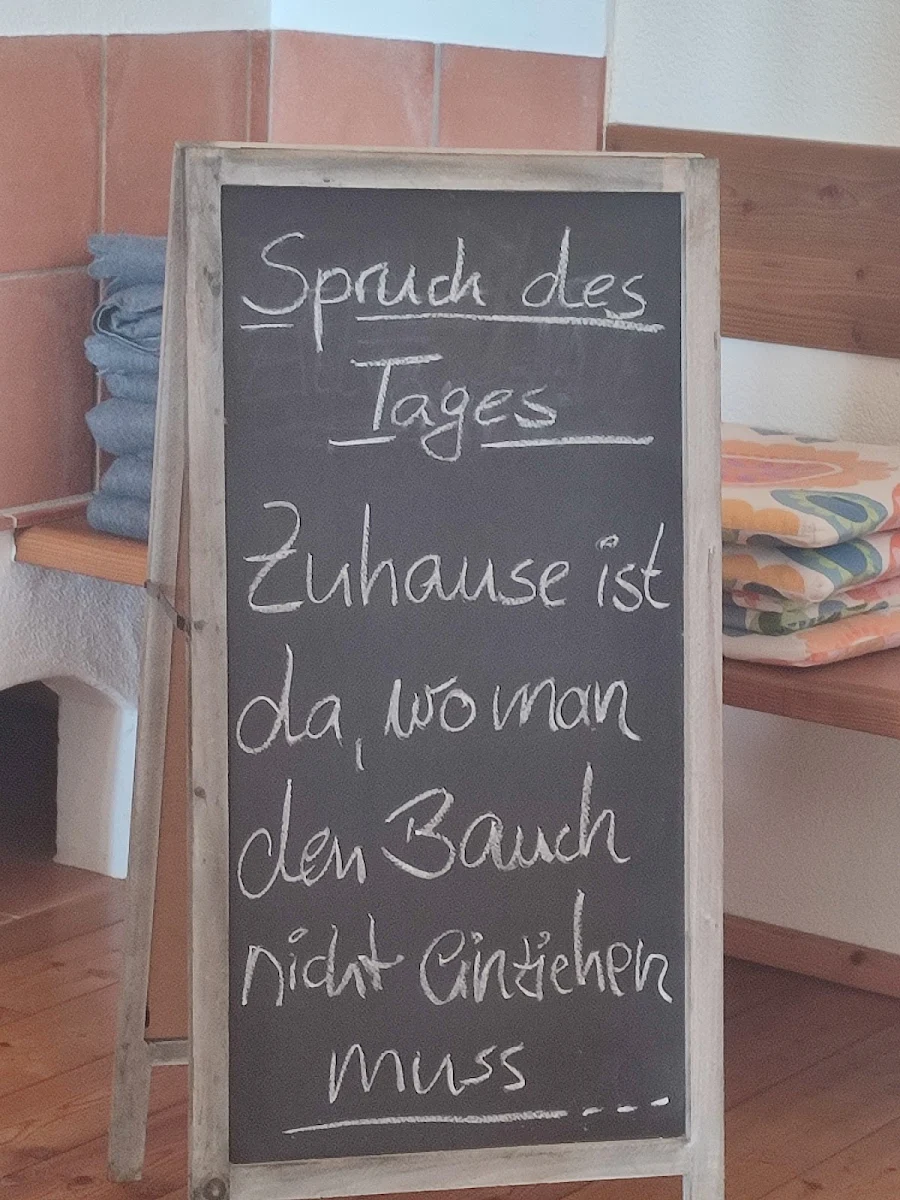 Spruch des
Tages
Zuhause ist
da, wo man
den Bauch
nicht einziehen
muss